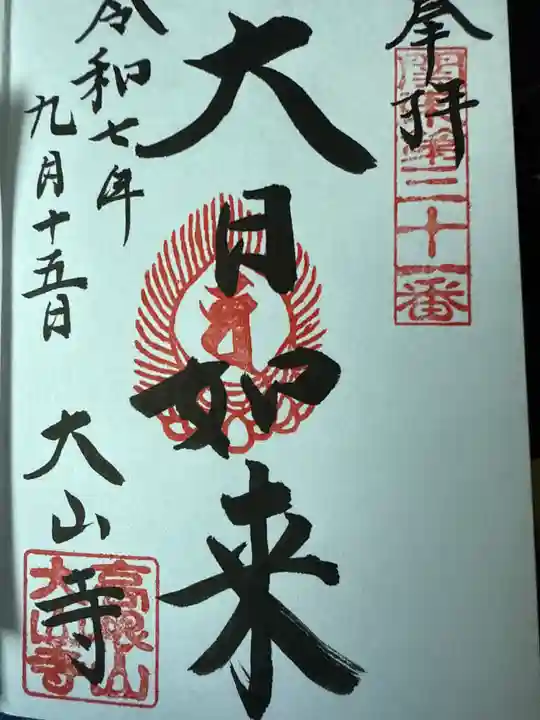 奉拝
関東第三十一番
大日如来
令和七年
九月十五日
大山寺
高蔵山
大山寺